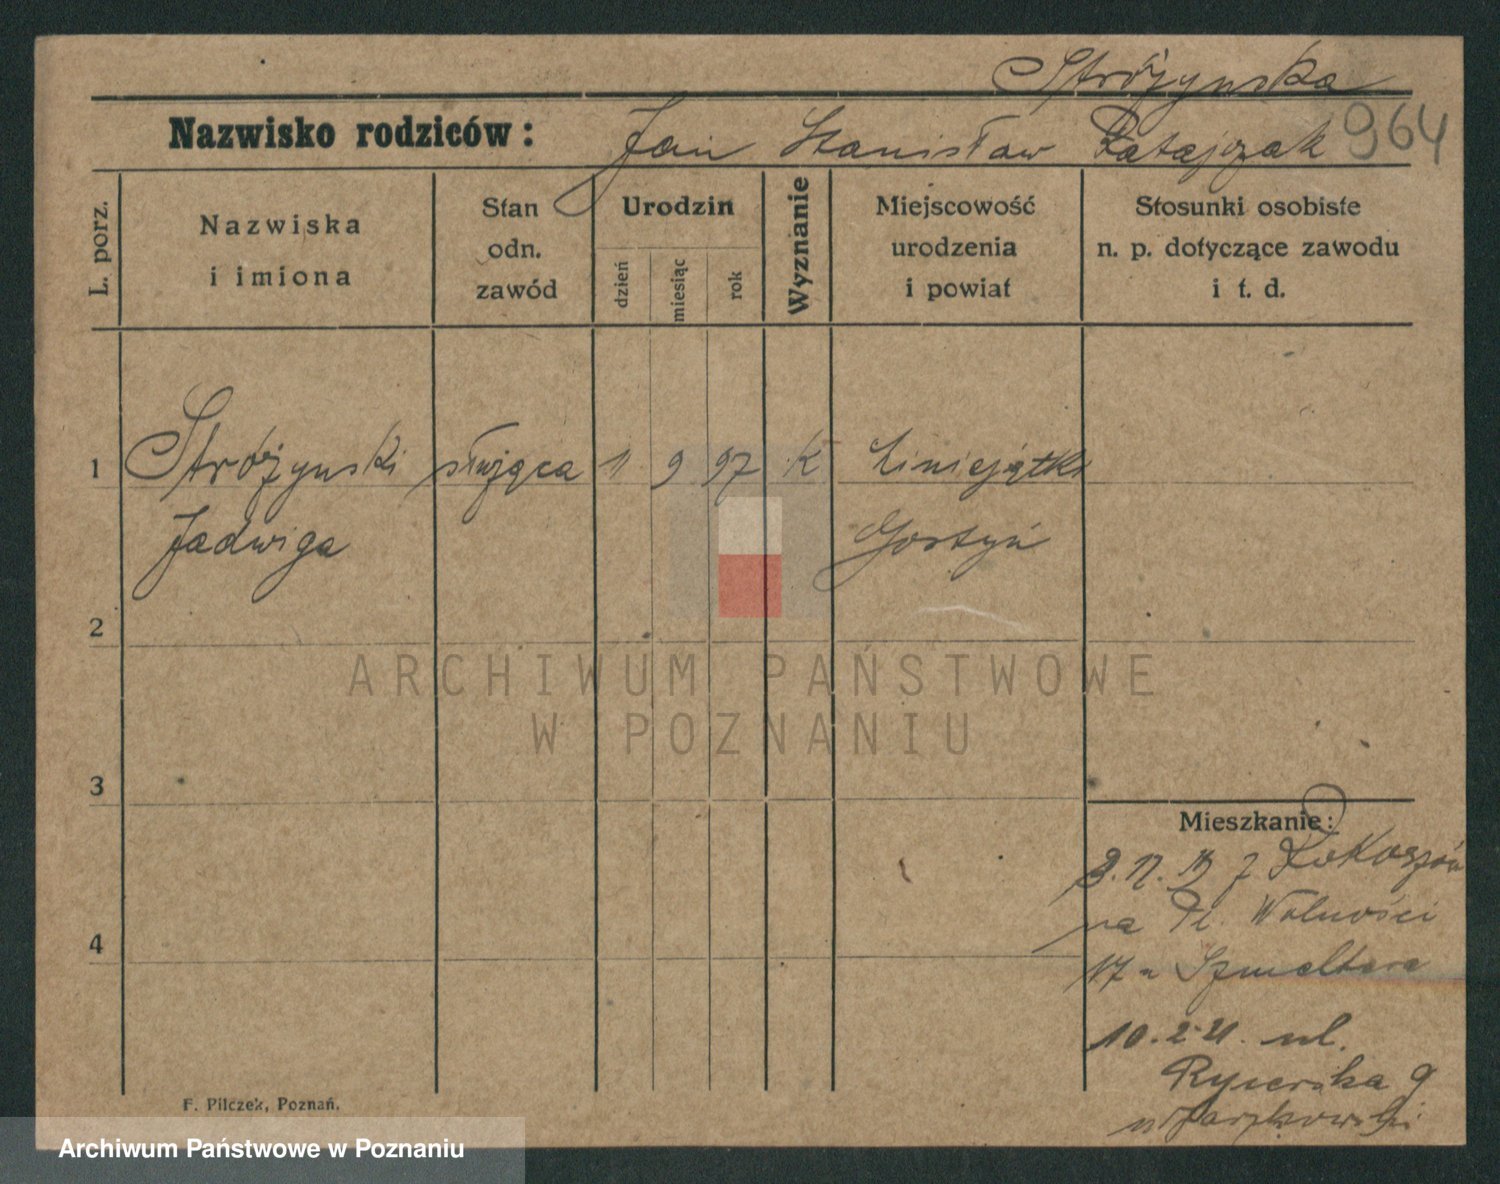 Stróżynska
Nazwisko rodziców: Jan Stanisław Ratajczak 964
L. porz.
Nazwiska
i imiona
Stan
odn.
zawód
Urodzin
dzień
miesiąc
rok
Wyznanie
Miejscowość
urodzenia
i powiat
Stosunki osobiste
n. p. dotyczące zawodu
i t. d.
1 Stróżynski służąca 11 9 97 K
Jadwiga Gostyń
2
ARCHIWUM PAŃSTWOWE
W POZNANIU
3
Mieszkanie:
z
na Pl. Wolności
4
17 u Szmeltera
10.2.21. ul.
Rycerska 9
F. Pilczek, Poznań.
Archiwum Państwowe w Poznaniu